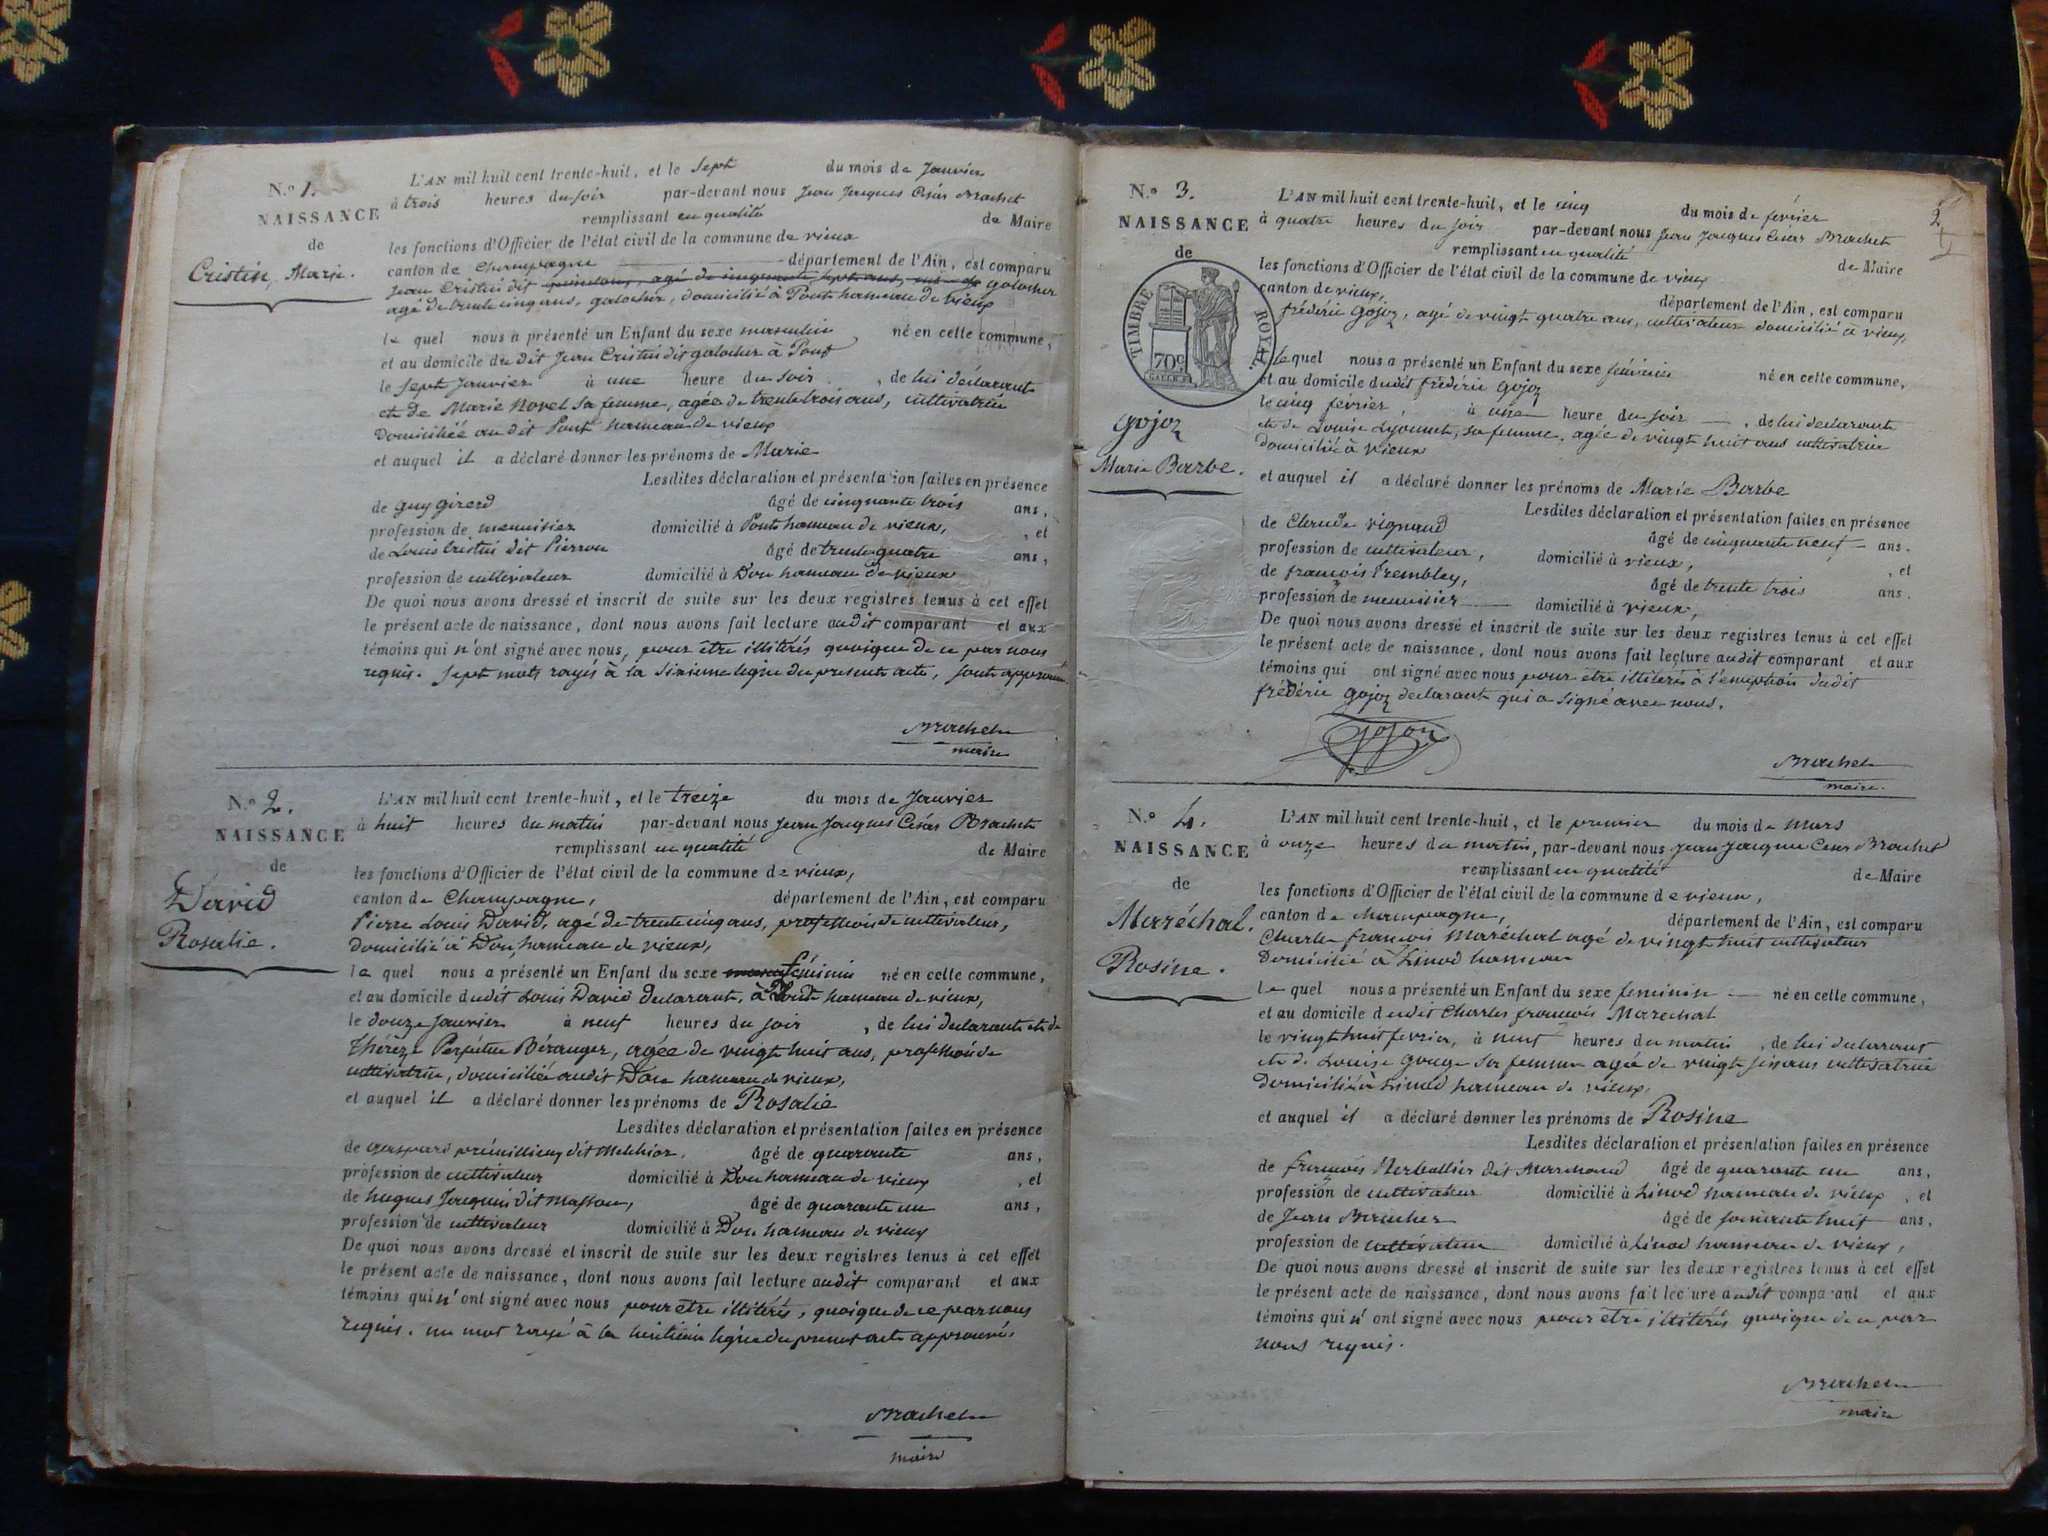 N.º 1.
NAISSANCE
de
Cristin, Marie.
L'AN mil huit cent trente-huit, et le sept du mois de Janvier
à trois heures du soir par-devant nous Jean Jacques César Brachet
remplissant en qualité de Maire
les fonctions d'Officier de l'état civil de la commune de vieux
canton de Champagne département de l'Ain, est comparu
Jean Cristin dit galocher
agé de trente cinq ans, galocher, domicilié à Pont hameau de vieux
le quel nous a présenté un Enfant du sexe masculin né en cette commune,
et au domicile du dit Jean Cristin dit galocher à Pont
le sept Janvier à une heure du soir, de lui déclarant
et de Marie Novel sa femme, agée de trente trois ans, cultivatrice
domiciliée au dit Pont hameau de vieux
et auquel il a déclaré donner les prénoms de Marie
Lesdites déclaration et présentation faites en présence
de guy girerd âgé de cinquante trois ans,
profession de menuisier domicilié à Pont hameau de vieux, , et
de Louis Cristin dit Pierrou âgé de trente quatre ans,
profession de cultivateur domicilié à Don hameau de vieux
De quoi nous avons dressé et inscrit de suite sur les deux registres tenus à cet effet
le présent acte de naissance, dont nous avons fait lecture audit comparant et aux
témoins qui n'ont signé avec nous, pour être illitérés quoique de ce par nous
requis. sept mots rayés à la sixieme ligne du present acte, sont approuvés
Brachet
maire
N.º 2.
NAISSANCE
de
David
Rosalie.
L'AN mil huit cent trente-huit, et le treize du mois de Janvier
à huit heures du matin par-devant nous Jean Jacques César Brachet
remplissant en qualité de Maire
les fonctions d'Officier de l'état civil de la commune de vieux,
canton de Champagne, département de l'Ain, est comparu
Pierre Louis David, agé de trente cinq ans, profession de cultivateur,
domicilié à Don, hameau de vieux,
le quel nous a présenté un Enfant du sexe féminin né en cette commune,
et au domicile dudit Louis David declarant, à hameau de vieux,
le douze Janvier à neuf heures du soir, de lui declarant et de
Thérèze Perpétue Béranger, agée de vingt huit ans, profession de
cultivatrice, domiciliée audit Don hameau de vieux,
et auquel il a déclaré donner les prénoms de Rosalie
Lesdites déclaration et présentation faites en présence
de gaspard prémillieux dit Melchior, âgé de quarante ans,
profession de cultivateur domicilié à Don hameau de vieux , et
de hugues Jacquin dit masson, âgé de quarante un ans,
profession de cultivateur domicilié à Don hameau de vieux
De quoi nous avons dressé et inscrit de suite sur les deux registres tenus à cet effet
le présent acte de naissance, dont nous avons fait lecture audit comparant et aux
témoins qui n'ont signé avec nous pour être illitérés, quoique de ce par nous
requis. un mot rayé à la huitieme ligne du present acte approuvé.
Brachet
maire
2
N.º 3.
NAISSANCE
de
TIMBRE ROYAL
70c
gojoz
Marie Barbe.
L'AN mil huit cent trente-huit, et le cinq du mois de février
à quatre heures du soir par-devant nous Jean Jacques César Brachet
remplissant en qualité de Maire
les fonctions d'Officier de l'état civil de la commune de vieux
canton de vieux, département de l'Ain, est comparu
frédéric gojoz, agé de vingt quatre ans, cultivateur domicilié à vieux,
lequel nous a présenté un Enfant du sexe féminin né en cette commune,
et au domicile dudit frédéric gojoz
le cinq février, à une heure du soir, de lui declarant
et de Louise Lyonnet, sa femme, agée de vingt huit ans cultivatrice
domiciliée à vieux
et auquel il a déclaré donner les prénoms de Marie Barbe
Lesdites déclaration et présentation faites en présence
de Claude vignaud âgé de cinquante neuf ans.
profession de cultivateur, domicilié à vieux, , et
de françois Trembley, âgé de trente trois ans.
profession de menuisier domicilié à vieux,
De quoi nous avons dressé et inscrit de suite sur les deux registres tenus à cet effet
le présent acte de naissance, dont nous avons fait lecture audit comparant et aux
témoins qui ont signé avec nous pour être illitérés à l'exception dudit
frédéric gojoz declarant qui a signé avec nous.
gojon
Brachet
maire.
N.º 4.
NAISSANCE
de
Maréchal.
Rosine.
L'AN mil huit cent trente-huit, et le premier du mois de mars
à onze heures du matin, par-devant nous Jean Jacques Cesar Brachet
remplissant en qualité de Maire
les fonctions d'Officier de l'état civil de la commune de vieux,
canton de champagne, département de l'Ain, est comparu
Charles françois Maréchal agé de vingt huit cultivateur
domicilié à Linod hameau
le quel nous a présenté un Enfant du sexe feminin né en cette commune,
et au domicile dudit Charles françois Marechal
le vingt huit fevrier, à neuf heures du matin, de lui declarant
et de Louise gouge sa femme agée de vingt six ans cultivatrice
domiciliée à Linod hameau de vieux,
et auquel il a déclaré donner les prénoms de Rosine
Lesdites déclaration et présentation faites en présence
de françois dit marchand âgé de quarante un ans,
profession de cultivateur domicilié à Linod hameau de vieux , et
de Jean âgé de soixante huit ans,
profession de cultivateur domicilié à Linod hameau de vieux,
De quoi nous avons dressé et inscrit de suite sur les deux registres tenus à cet effet
le présent acte de naissance, dont nous avons fait lecture audit comparant et aux
témoins qui n'ont signé avec nous pour être illitérés quoique de ce par
nous requis.
Brachet
maire